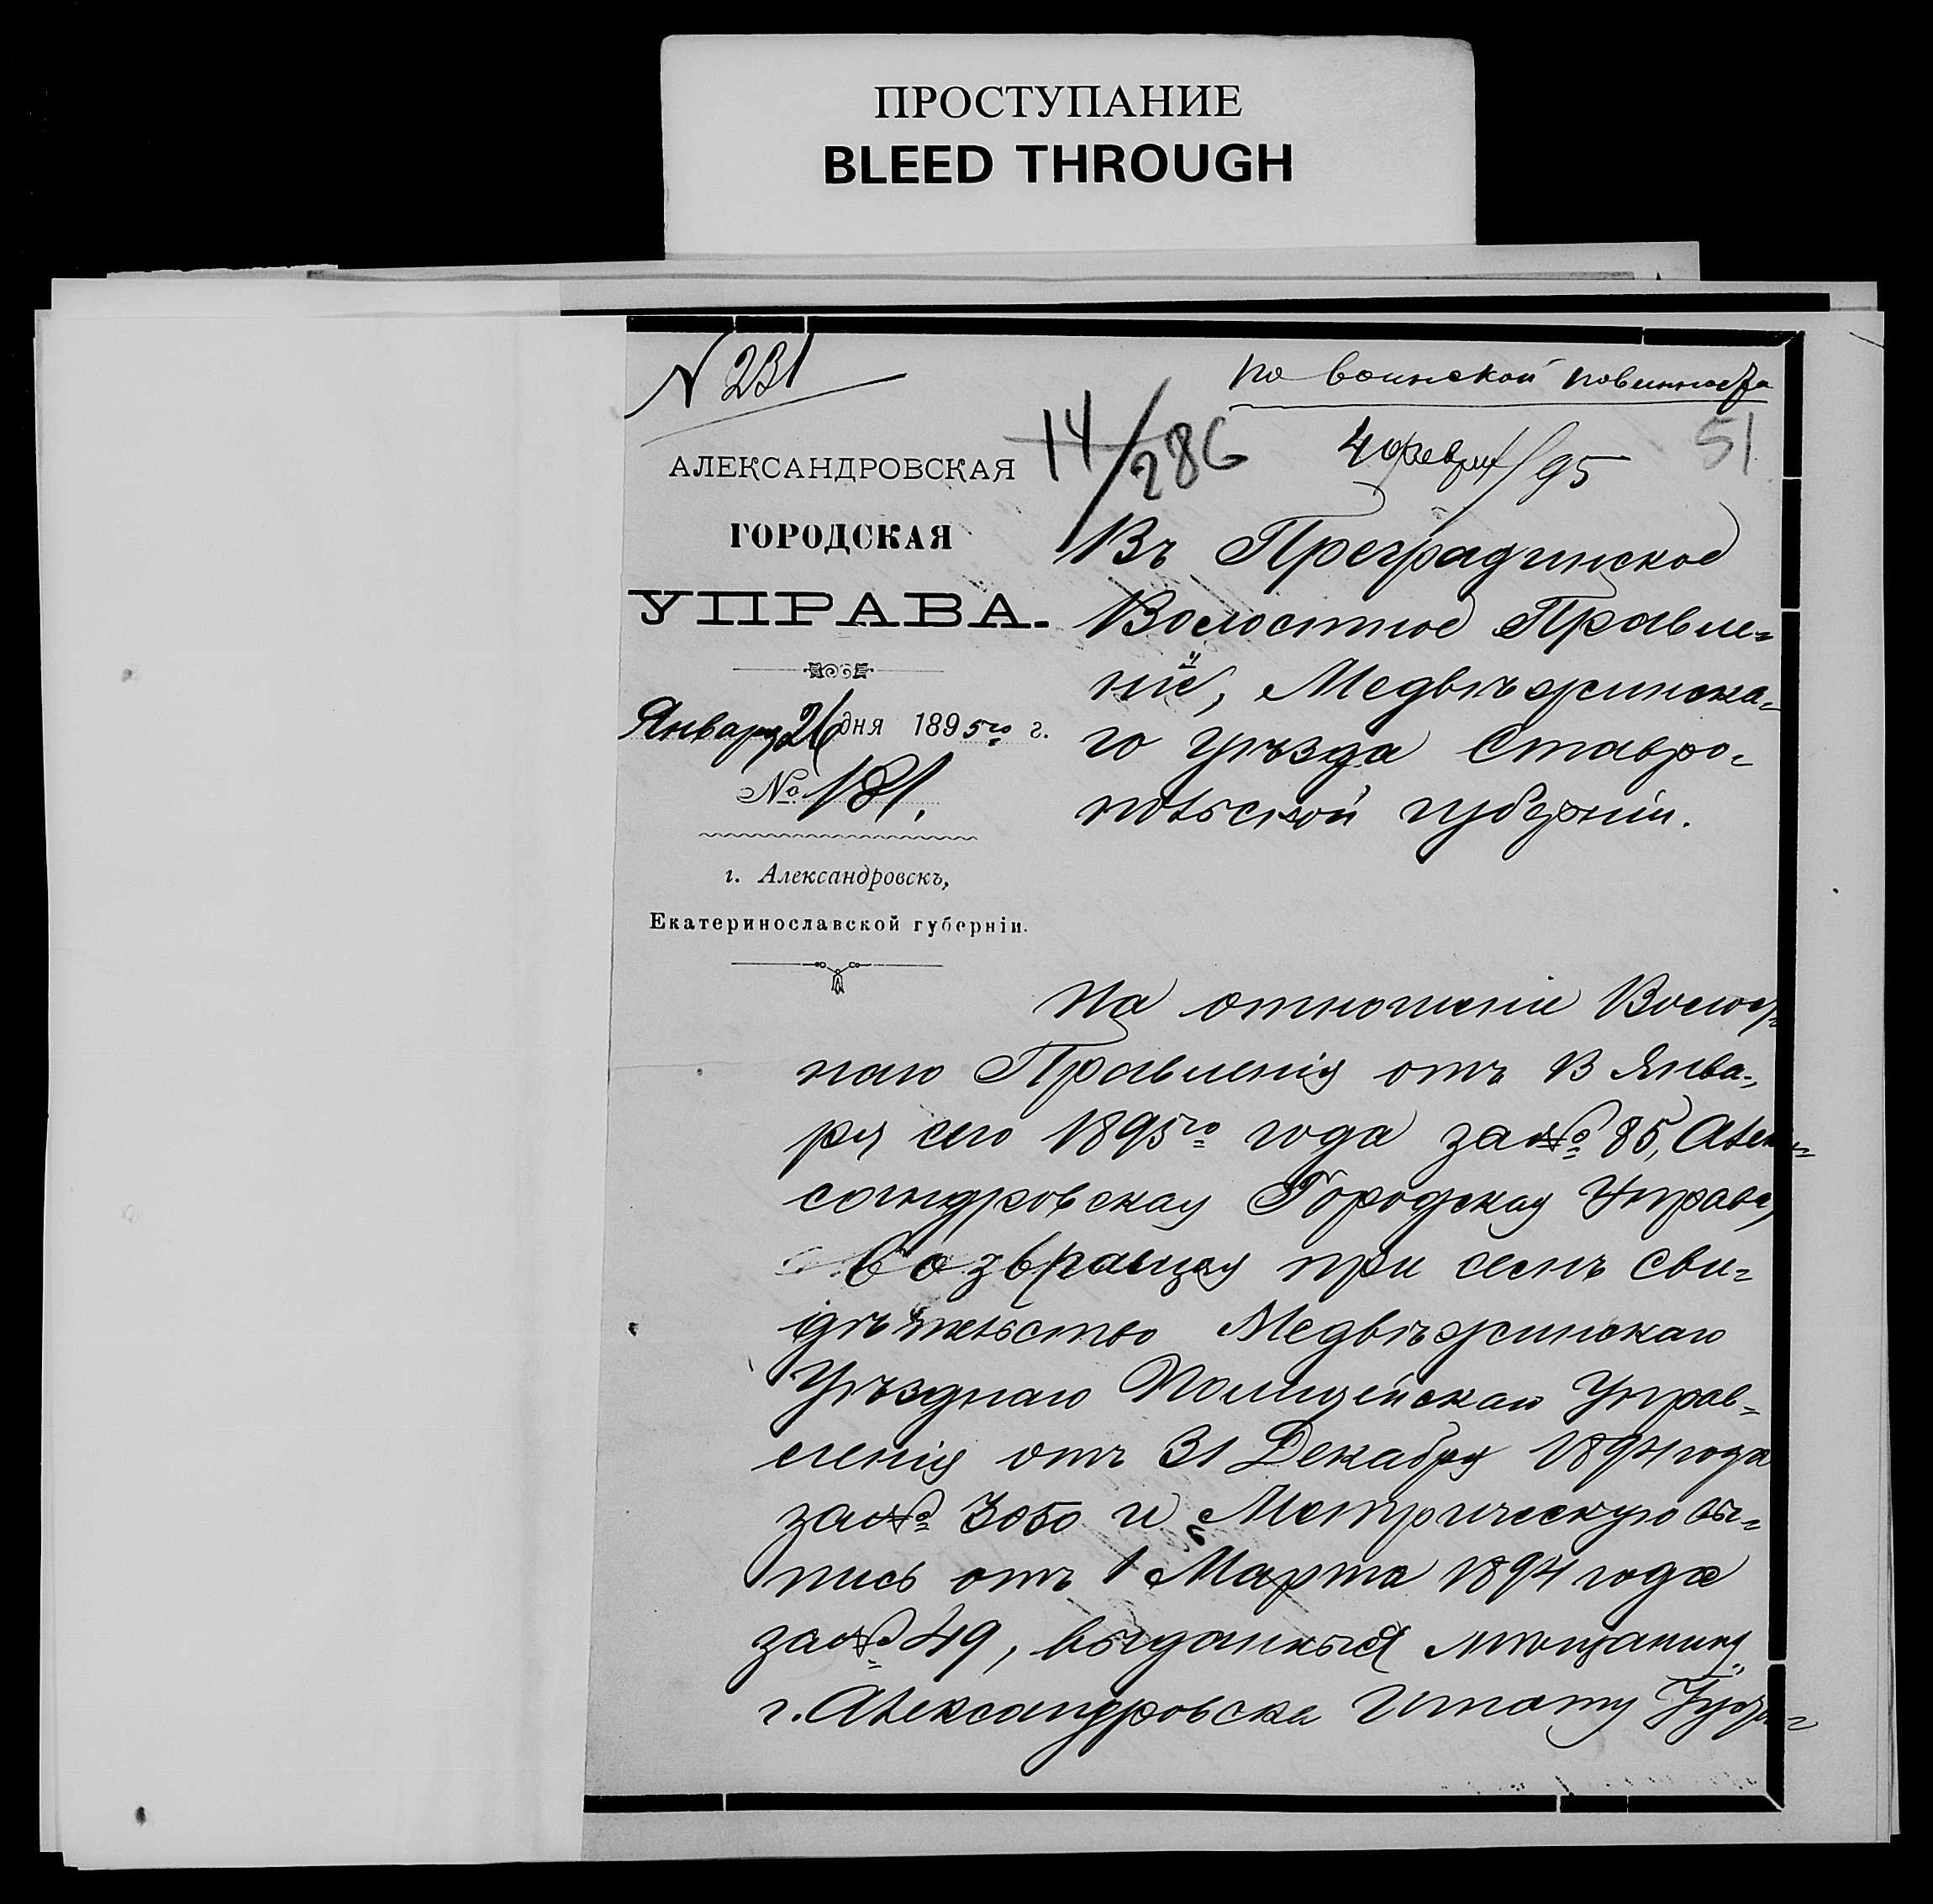 ПРОСТУПАНИЕ
BLEED THROUGH
№ 231
по воинской повинности
51
14/286
4 Февр/95
АЛЕКСАНДРОВСКАЯ
ГОРОДСКАЯ
УПРАВА.
Января 26 дня 1895го г.
№ 181.
г. Александровскъ,
Екатеринославской губерніи.
Въ Преградинское
Волостное Правле=
ніе, Медвѣжинска=
го уѣзда Ставро=
польской губерніи.
На отношеніе Волост=
наго Правленія отъ 13 Янва=
ря сего 1895го года за № 85, Алек=
сандровская Городская Управа,
возвращая при семъ сви=
дѣтельство Медвѣжинскаго
Уѣзднаго Полицейскаго Управ=
ленія отъ 31 Декабря 1894 года
за № 3050 и Метрическую вы=
пись отъ 1 Марта 1894 года
за № 49, выданныя мѣщанину
г. Александровска Игнату